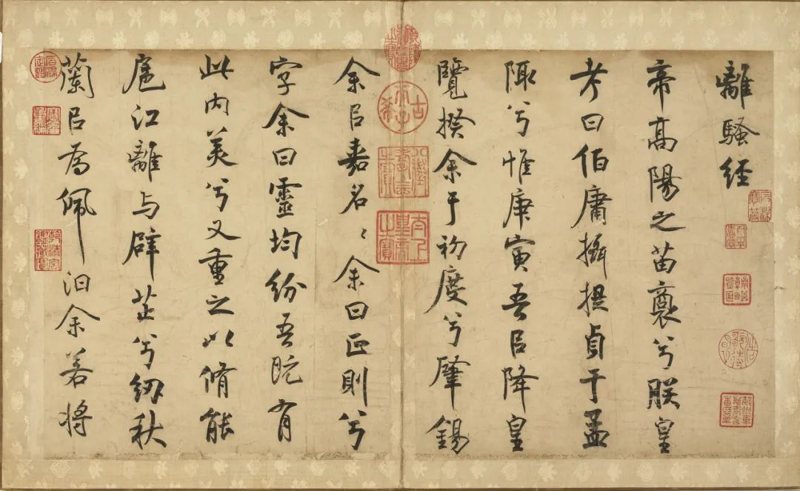 離騷經
帝高陽之苗裔兮朕皇
考曰伯庸攝提貞于孟
陬兮惟庚寅吾㠯降皇
覽揆余于初度兮肇錫
余㠯嘉名〻余曰正則兮
字余曰靈均紛吾既有
此内美兮又重之以脩能
扈江離与辟芷兮紉秋
蘭㠯為佩汩余若將
古希天子
太上皇帝之寶